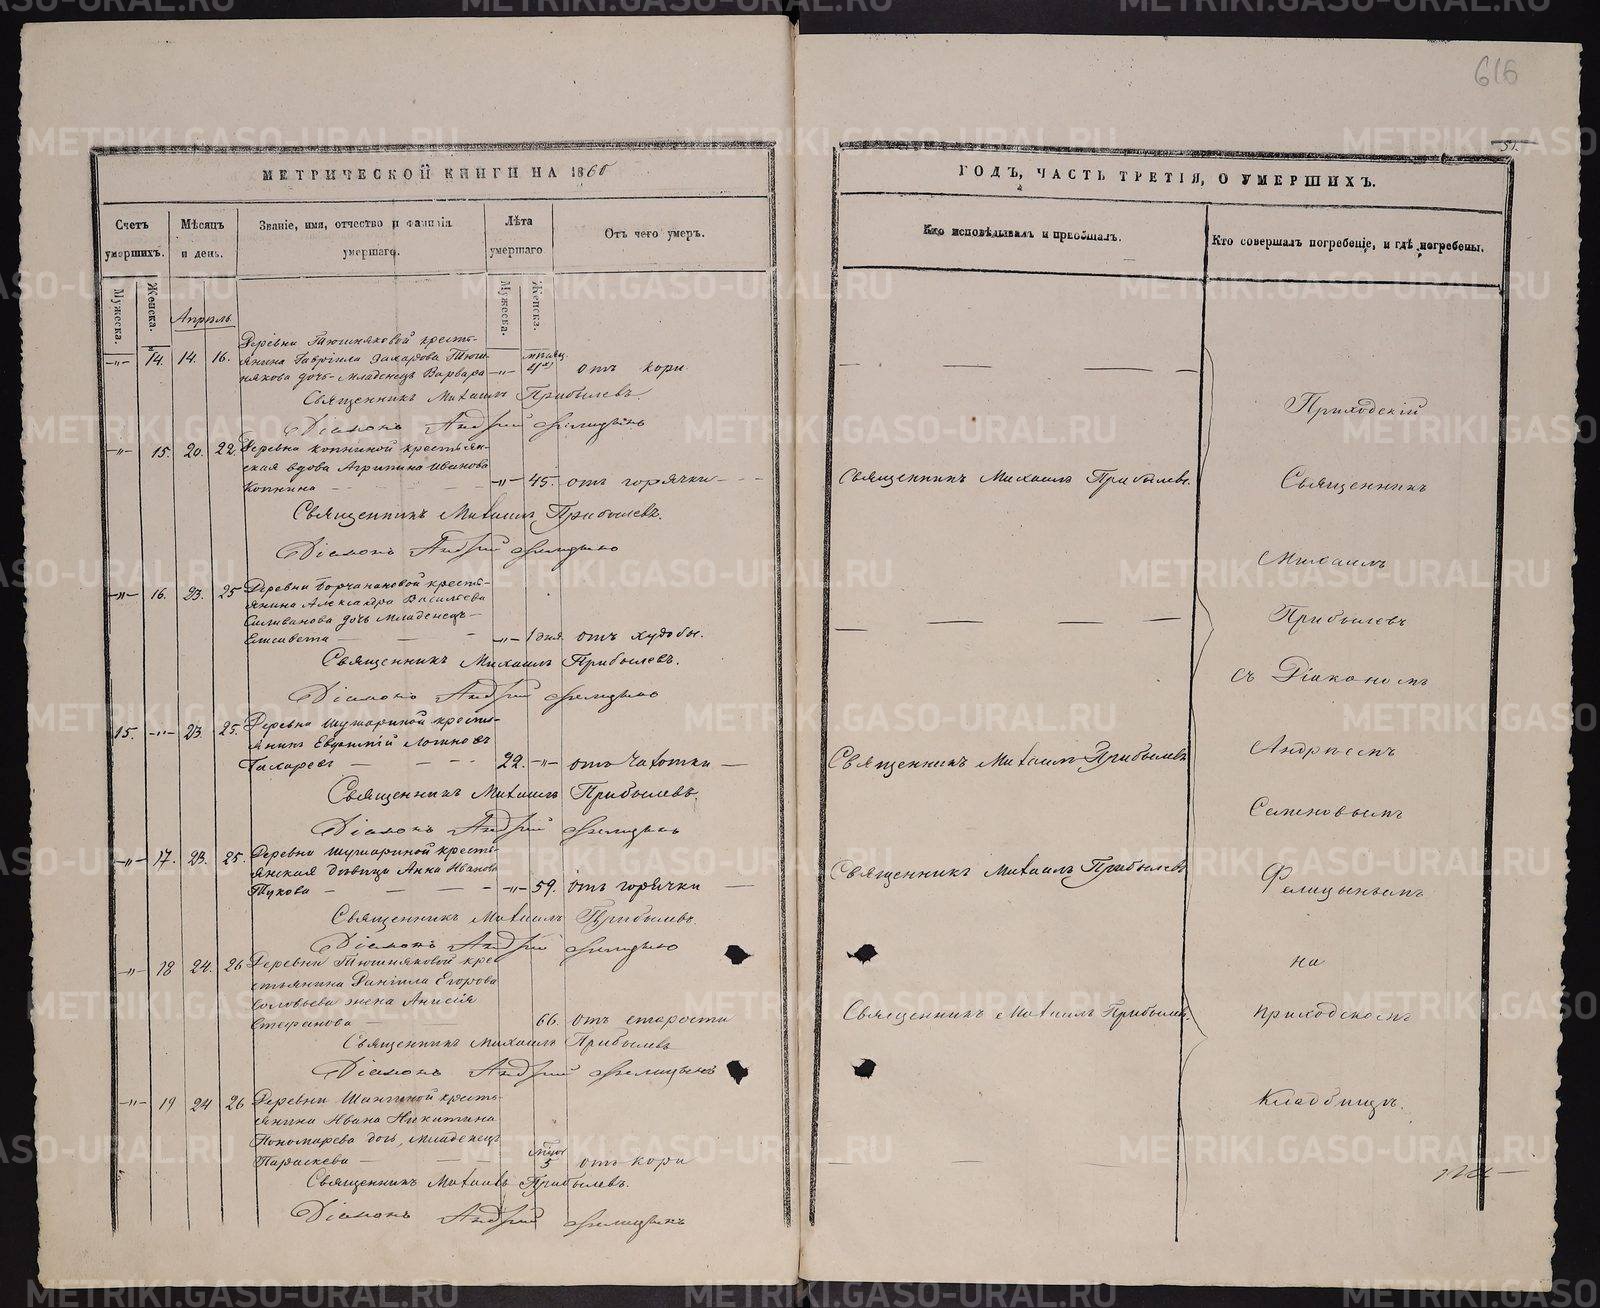 616
51.
МЕТРИЧЕСКОЙ КНИГИ НА 1860
ГОДЪ, ЧАСТЬ ТРЕТІЯ, О УМЕРШИХЪ.
Счетъ умершихъ.
Мѣсяцъ и день.
Званіе, имя, отчество и фамилія умершаго.
Лѣта умершаго
Отъ чего умеръ.
Кто исповѣдывалъ и пріобщалъ.
Кто совершалъ погребеніе, и гдѣ погребены.
Мужеска.
Женска.
Мужеска.
Женска.
Апрѣль.
Деревни Тюшняковой кресть-
-"- 14. 14 16. янина Гавріила Захарова Тюш-
някова дочь младенецъ Варвара -"- 4 отъ кори.
Священникъ Михаилъ Прибылевъ.
Діаконъ Андрей Фелицынъ
-"- 15. 20. 22. Деревни Копниной крестьян-
ская вдова Агрипина Иванова
Копнина -"- 45. отъ горячки
Священникъ Михаилъ Прибылевъ.
Священникъ Михаилъ Прибылевъ.
Діаконъ Андрей Фелицынъ
-"- 16. 23. 25 Деревни кресть-
янина Александра Васильева
Селиванова дочь младенецъ
Елисавета -"- 1 дня. отъ худобы.
Священникъ Михаилъ Прибылевъ.
Діаконъ Андрей Фелицынъ
15. -"- 23. 25. Деревни Шушариной кресть-
янинъ Логиновъ
22. -"- отъ чахотки
Священникъ Михаилъ Прибылевъ
Священникъ Михаилъ Прибылевъ.
Діаконъ Андрей Фелицынъ
-"- 17. 23. 25. Деревни Шушариной кресть-
янская дѣвица Анна Иванова
-"- 59. отъ горячки
Священникъ Михаилъ Прибылевъ
Священникъ Михаилъ Прибылевъ.
Діаконъ Андрей Фелицынъ
-"- 18 24. 26 Деревни Тюшняковой кре-
стьянина Даніила Егорова
Соловьева жена Анисія
Стефанова 66. отъ старости
Священникъ Михаилъ Прибылевъ.
Священникъ Михаилъ Прибылевъ
Діаконъ Андрей Фелицынъ
-"- 19 24 26 Деревни кресть-
янина Ивана Никитина
Пономарева дочь, младенецъ
Параскева 5 отъ кори
Священникъ Михаилъ Прибылевъ.
Діаконъ Андрей Фелицынъ
Приходскій
Священникъ
Михаилъ
Прибылевъ
съ Діакономъ
Андреемъ
Семеновымъ
Фелицынымъ
на
приходскомъ
Кладбищѣ.
METRIKI.GASO-URAL.RU